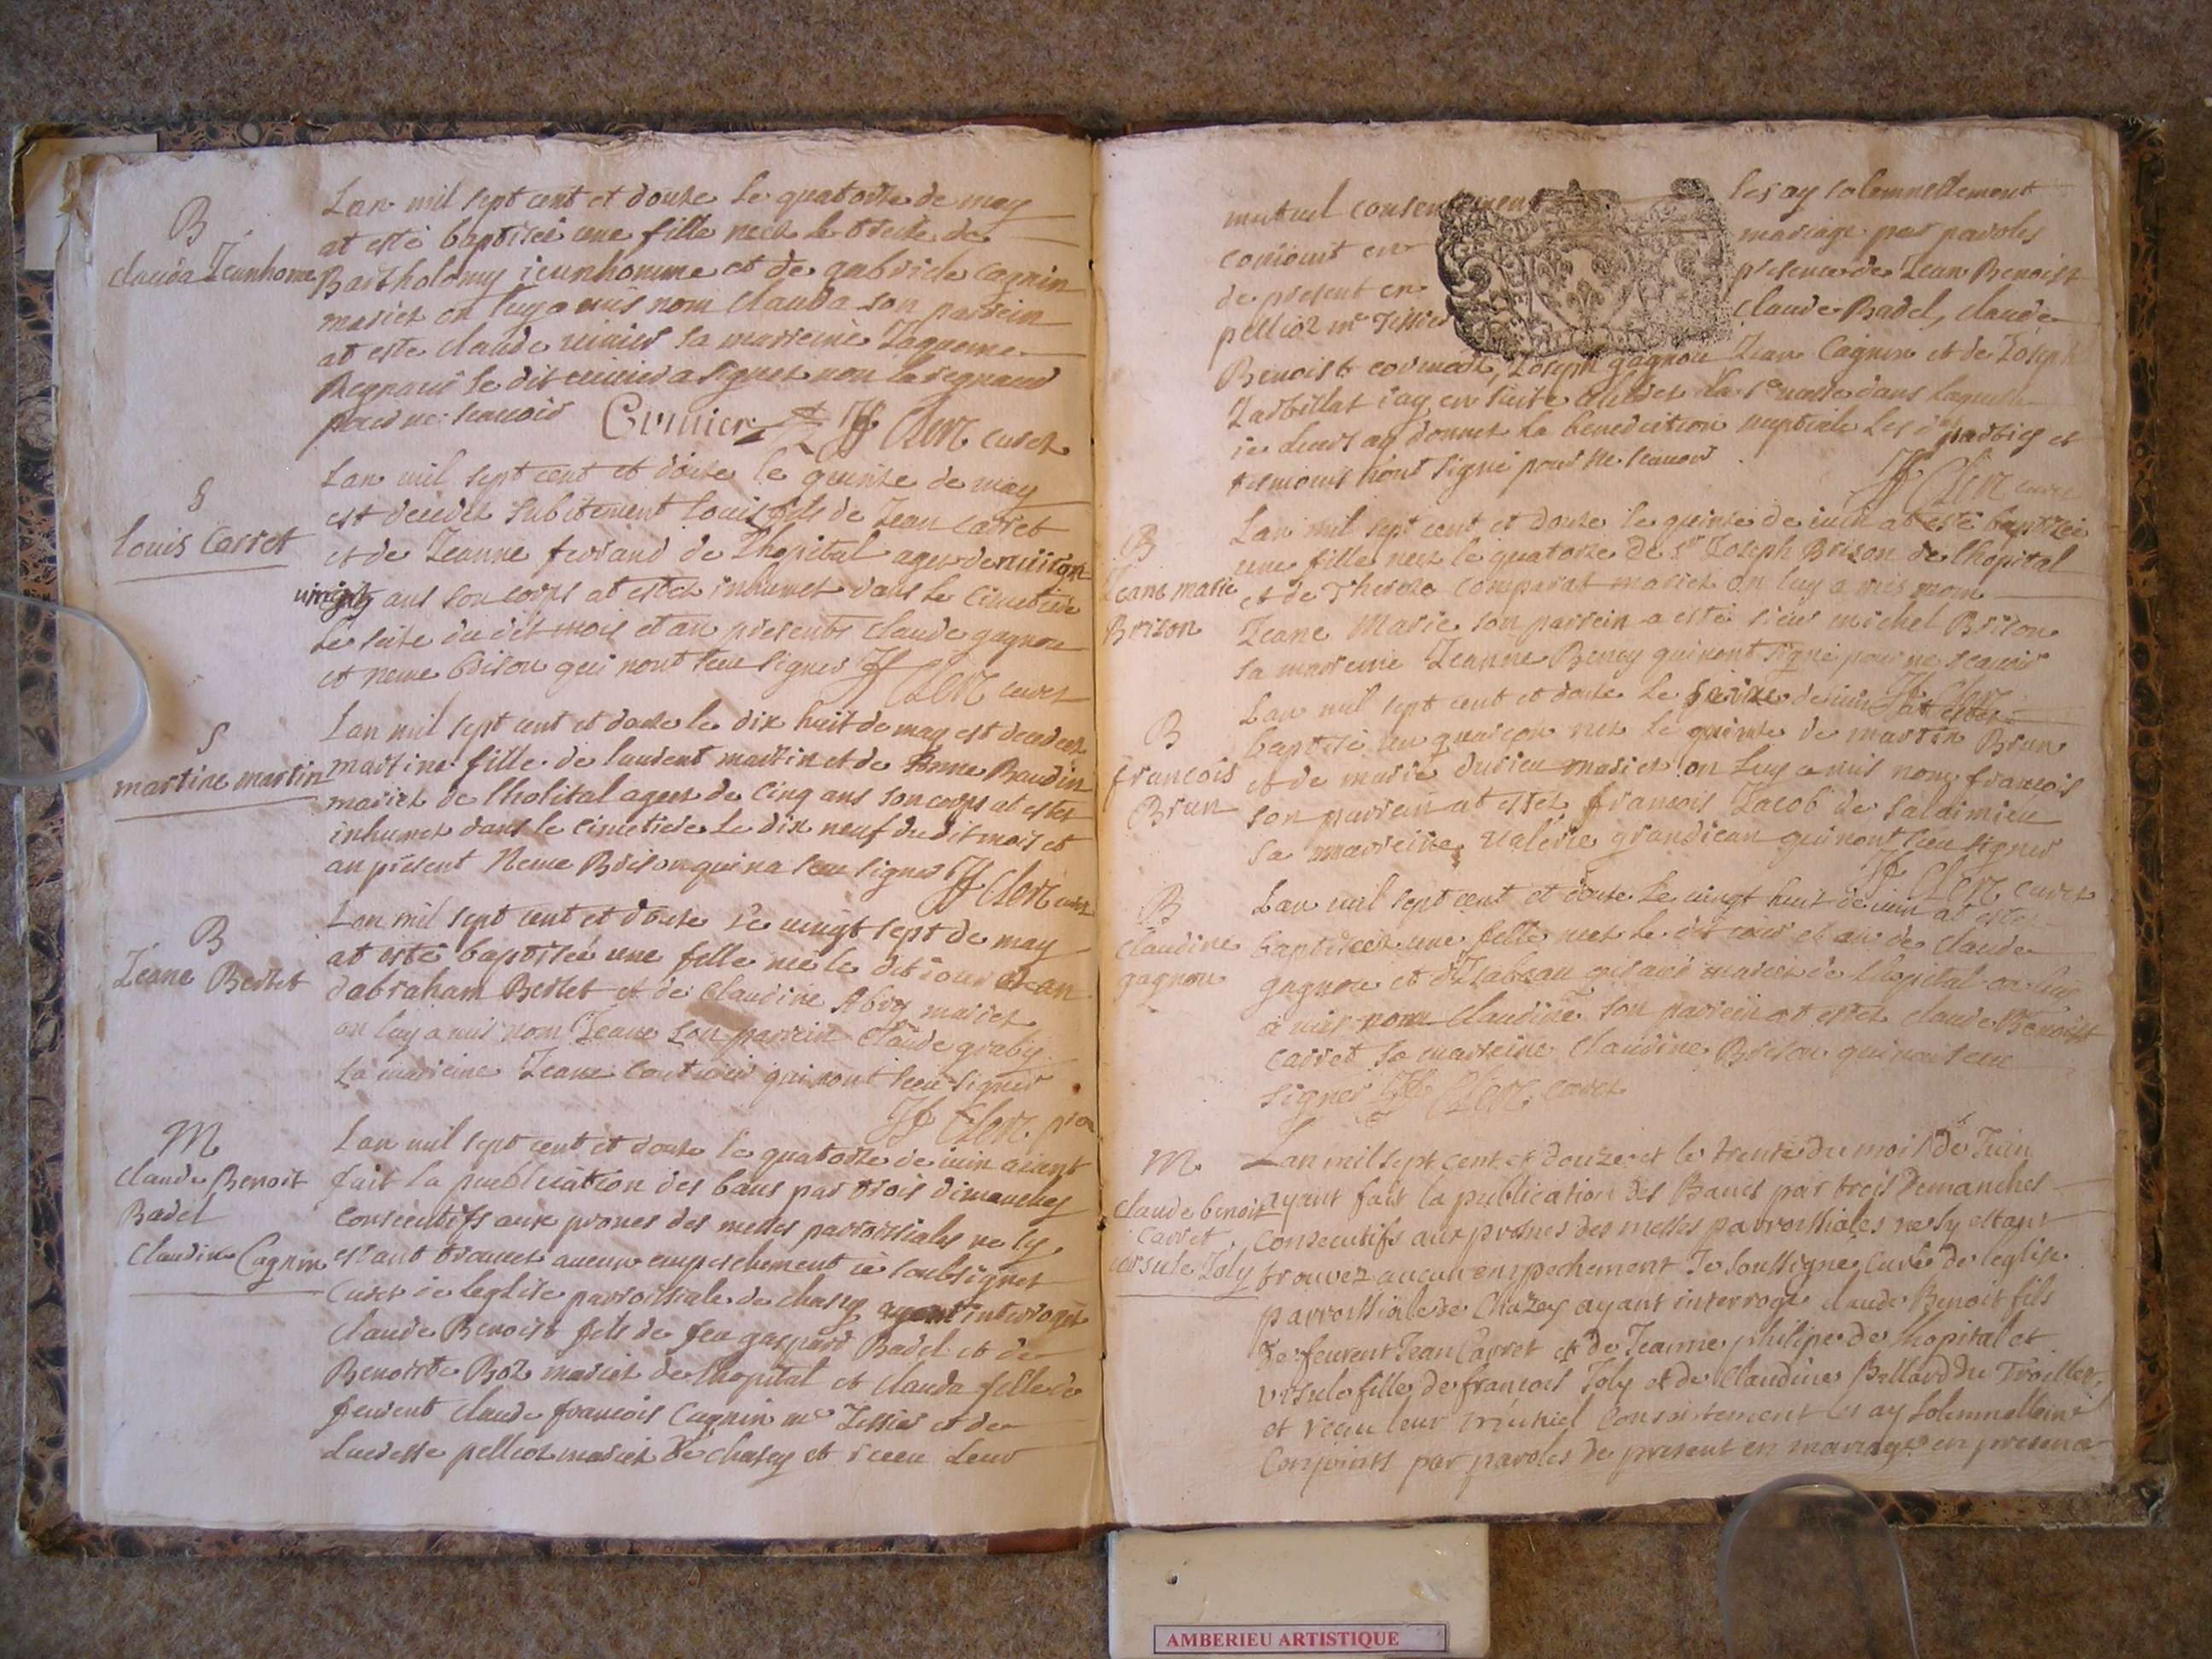 B
Clauda Jeunhome
Lan mil sept cent et douze le quatorze de may
at esté baptisée une fille neez le treize de
Bartholomy jeunhomme et de gabriele Cagnin
mariez on luy a mis nom Clauda son parrein
at este claude cuinier sa marreine Jaqueme
Regnaud le dit cuinier a signez non la regnaud
pour ne scavoir Cuinier JF Clerc curez
S
Louis Carret
Lan mil sept cent et douze le quinze de may
est decedez subitement Louis fils de Jean Carret
et de Jeanne ferrand de lhopital agez denuiron
uingt ans son corps at estez inhumez dans le Cimetiere
le seize du dit mois et an presents Claude gagnou
et neme brison qui nont sceu signer JF Clerc curez
S
martine martin
Lan mil sept cent et douze le dix huit de may est decedeez
martine fille de laurent martin et de Anne Baudin
mariez de lholital ageez de cinq ans son corps at estez
inhumez dans le cimetiere le dix neuf du dit mois et
an présent Neme Brison qui na sceu signer JF Clerc curez
B
Jeane Bertet
Lan mil sept cent et douze le uingt sept de may
at esté baptisée une fille nee le dit iour et an
dabraham Bertet et de Claudine Abry mariez
on luy a mis nom Jeane son parrein Claude graby
sa marreine Jeane qui nont sceu signer
JF Clerc
M
Claude Benoit
Badel
Claudine Cagnin
Lan mil sept cent et douze le quatorze de iuin aiant
fait la publication des bans par trois dimanches
consecutifs aux prones des messes parroissiales ne sy
estant trouuez aucun empeschement ie soubsignez
curez de leglise parroissiale de chasey ayant interrogéz
Claude Benoist fils de feu gaspard Badel et de
Benoite Boz mariez de lhopital et Clauda fille de
feurent Claude francois Cagnin me Tissier et de
Lucresse pellioz mariez de chasey et receu leur
mutuel consentement les ay solemnellement
conioint en mariage par paroles
de present en presence de Jean Benoist
pellioz me Tissier Claude Badel, claude
Benoist cormoz, Joseph gagnou Jean Cagnin et de Joseph
Jarbillat iay en suite celebrez la ste messe dans laquelle
ie leurs ay donnez la benediction nuptiale les dt parties et
tesmoins nont signé pour ne scauoir
JF Clerc curez
B
Jeane marie
Brison
Lan mil sept cent et douze le quinze de iuin at esté baptizée
une fille neez le quatorze de sr Joseph Brison de lhopital
et de Therese Comparat mariez on luy a mis nom
Jeane Marie son parrein a esté sieur michel Brison
sa marreine Jeanne Beney qui nont signé pour ne scauoir
JF Clerc
B
francois
Brun
Lan mil sept cent et douze le seize de iuin at estez
baptisé un guarçon nez le quinze de martin Brun
et de marie durieu mariez on luy a mis nom francois
son parrein at estez francois Jacob de salaimieu
sa marreine Valérie grandiean qui nont sceu signer
JF Clerc curez
B
Claudine
gagnou
Lan mil sept cent et douze le uingt huit de iuin at estez
baptiseez une fille neez le dit iour et an de Claude
gagnou et disabeau mariez de lhopital on luy
a mis nom Claudine son parrein at estez Claude Benoist
carret sa marreine Claudine Brison qui nont sceu
signer JF Clerc curez
M
Claude benoit
Carret
ursule Joly
Lan mil sept cent et douze et le trente du mois de Juin
ayant fait la publication des Bancs par trois Demanches
Consecutifs aux prosnes des messes parroissiales ne sy estant
trouvez aucun empechement Je soussigné Curé de leglise
parroissiale de Chazey ayant interrogé claude Benoit fils
de feurent Jean Carret et de Jeanne philipe de lhopital et
ursule fille de francois Joly et de Claudine Bellard du Troiller
et recu leur mutuel Consentement les ay solemnellement
Conjoints par paroles de present en mariage en presence
AMBERIEU ARTISTIQUE